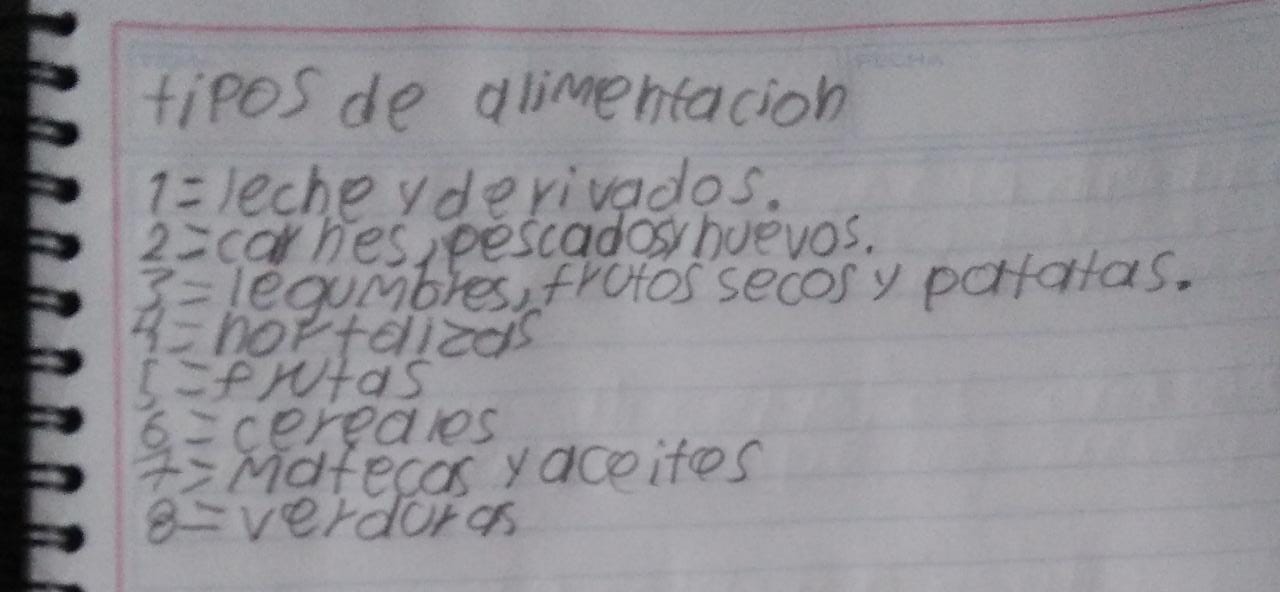 FECHA
tipos de alimentacion
1=leche y derivados.
2=carnes, pescados y huevos.
3=legumbres, frutos secos y patatas.
4=hortalizas
5=frutas
6=cereales
7=matecas y aceites
8=verduras